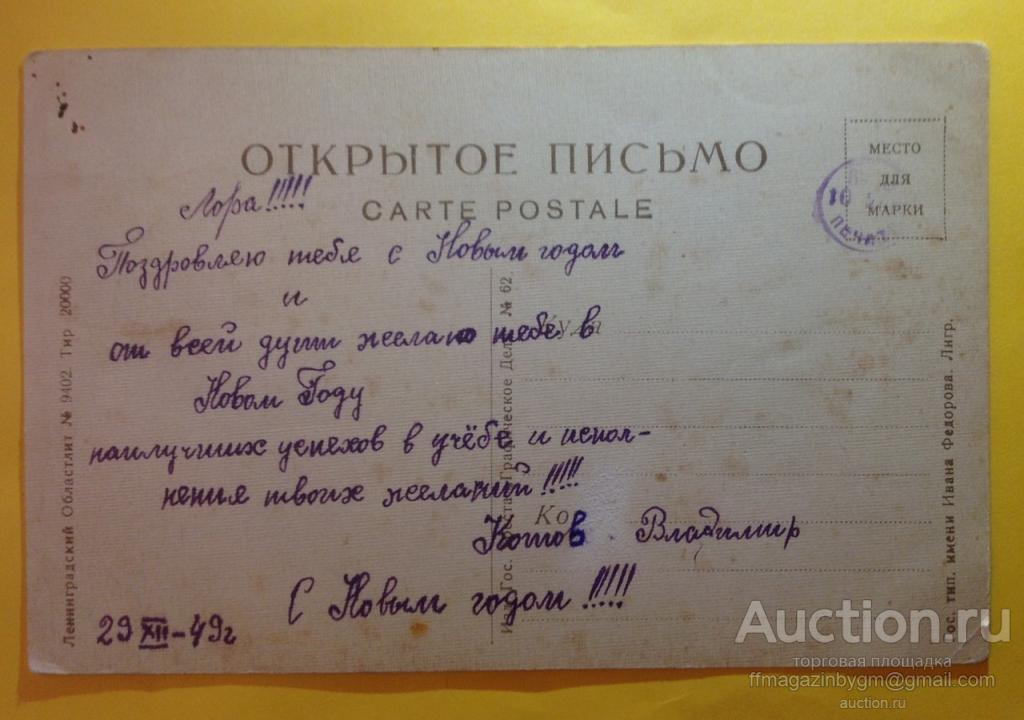 ОТКРЫТОЕ ПИСЬМО
CARTE POSTALE
МЕСТО
ДЛЯ
МАРКИ
10
ПЕЧАТ
Лора!!!!!
Поздровляю тебя с Новым годом
и
от всей души желаю тебе в
Новом Году
наилучших успехов в учёбе и испол-
нения твоих желаний!!!!!
Котов Владимир
С Новым годом!!!!!
29 XII-49г
Куда
Ленинградский Областлит № 9402. Тир 20000
Графическое Дело № 62.
Гос. тип. имени Ивана Федорова. Лнгр.
Auction.ru
торговая площадка
ffmagazinbygm@gmail.com
auction.ru